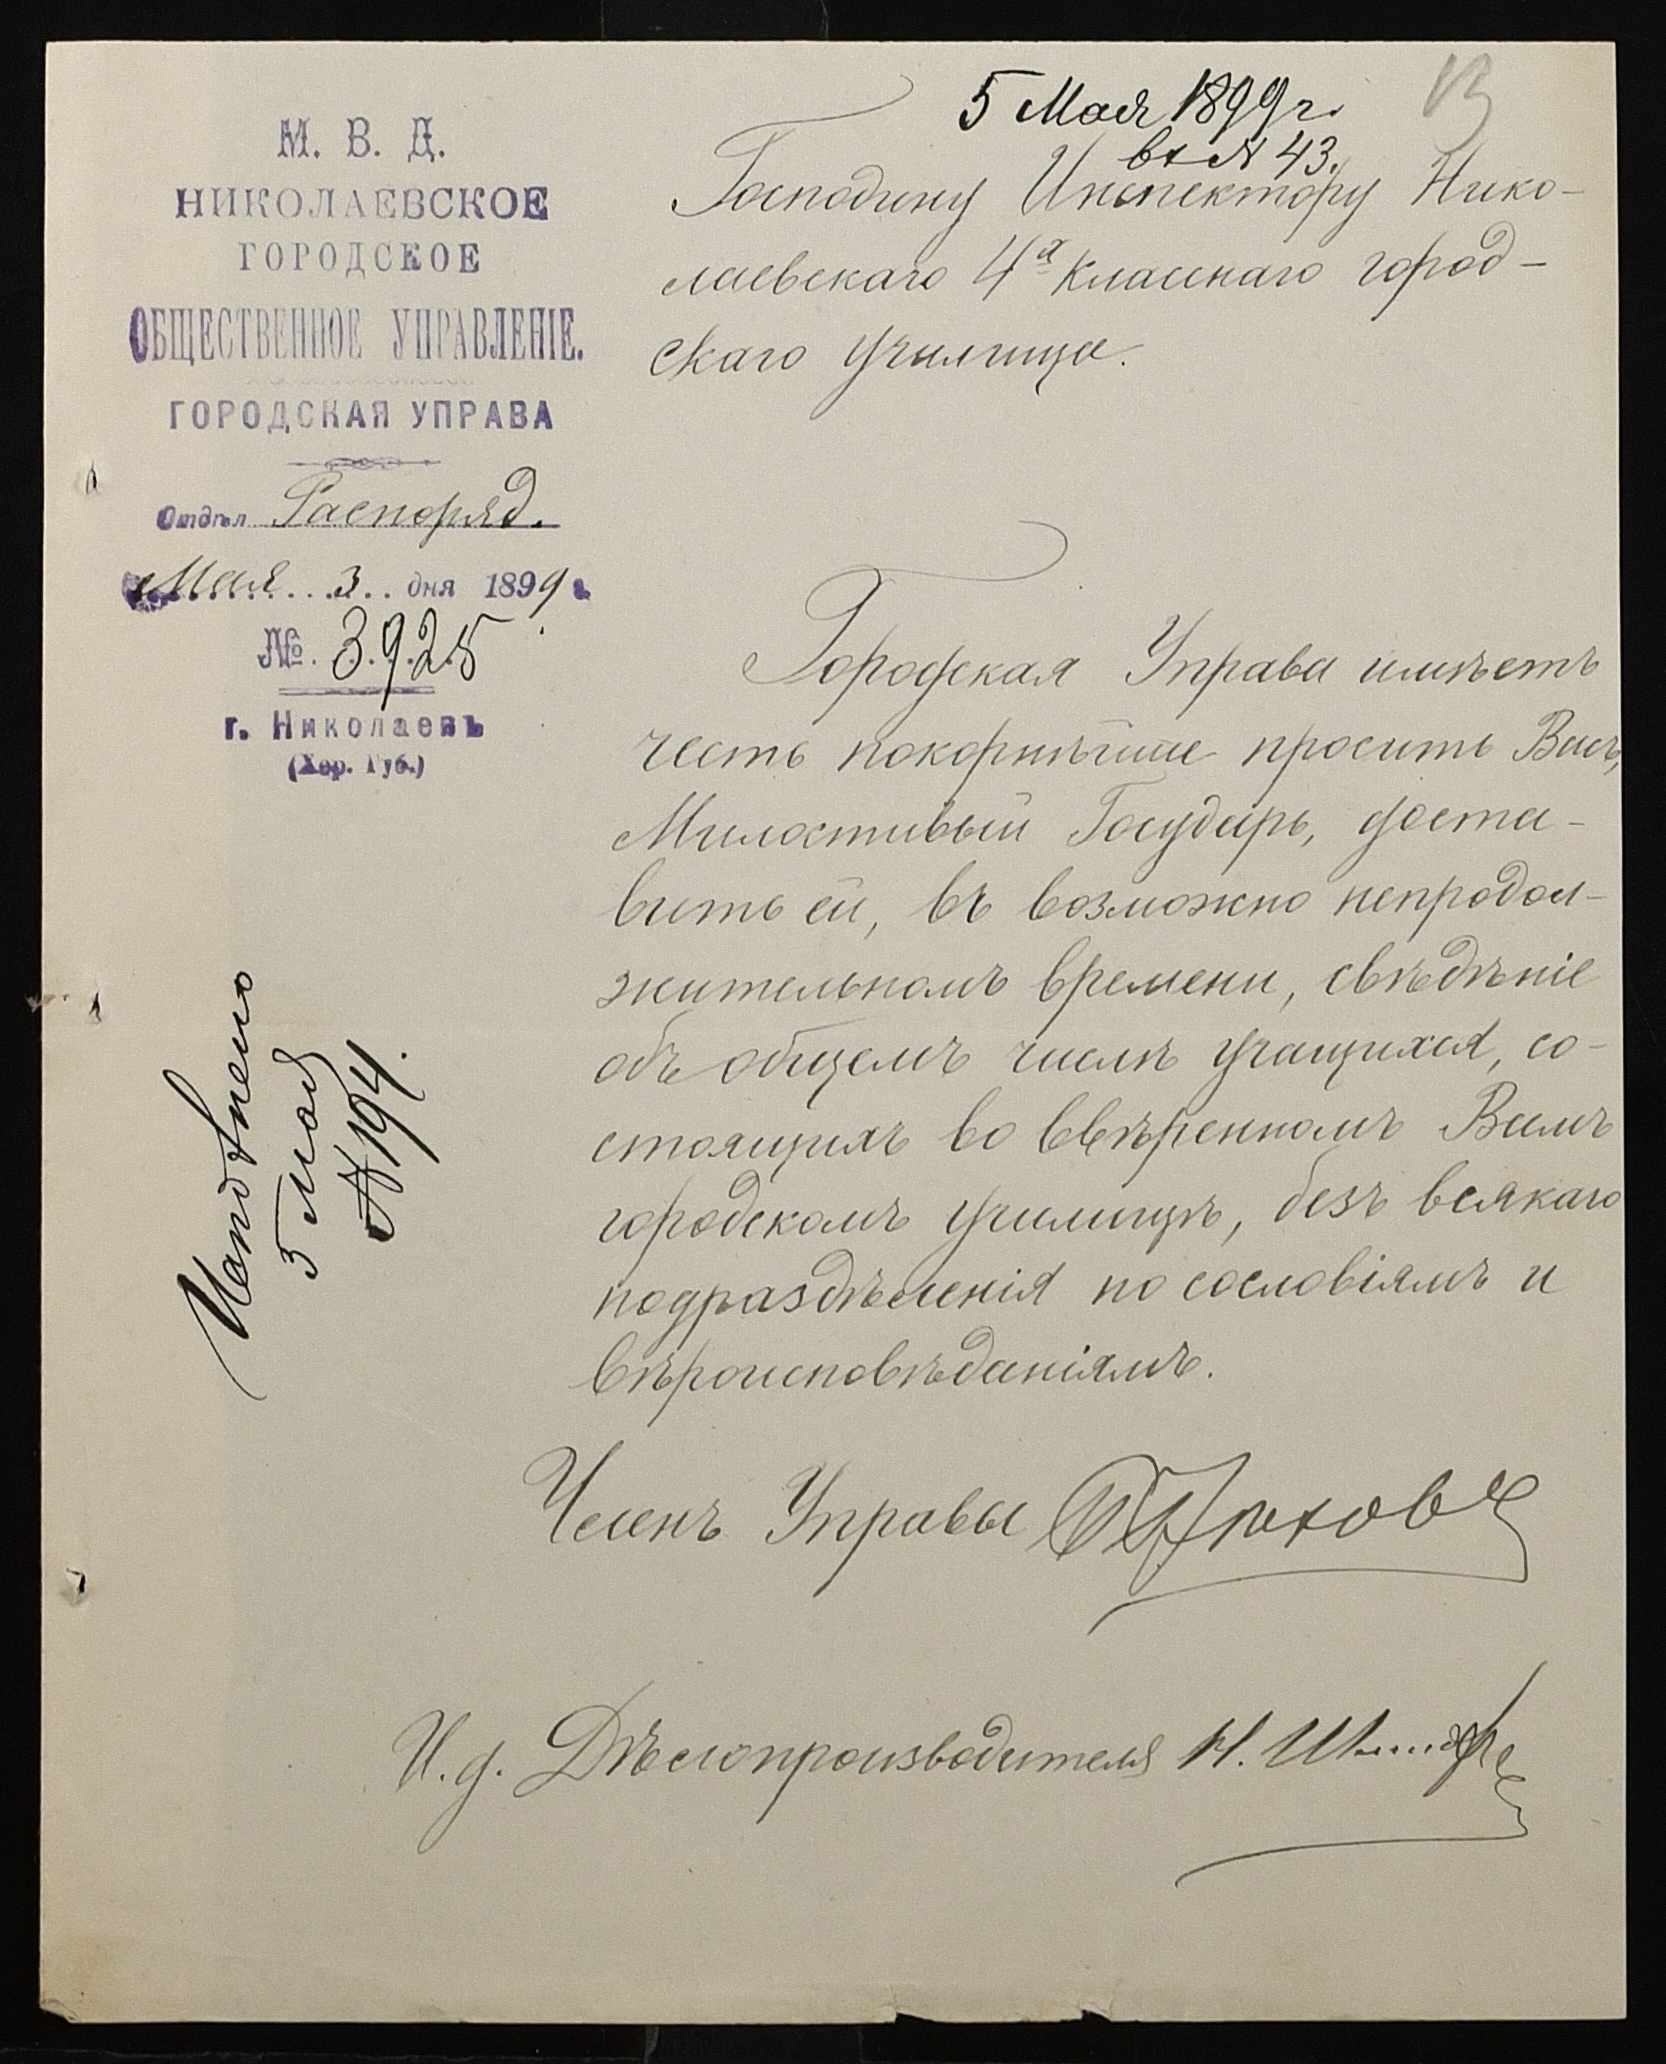 М. В. Д.
НИКОЛАЕВСКОЕ
ГОРОДСКОЕ
ОБЩЕСТВЕННОЕ УПРАВЛЕНІЕ.
ГОРОДСКАЯ УПРАВА
Отдѣл Распоряд.
Мая 3 дня 1899 г.
№ 3925
г. Николаевъ
(Хер. Губ.)
5 Мая 1899 г.
вх № 43.
13
Господину Инспектору Нико-
лаевскаго 4х классаго город-
скаго училища.
Городская Управа имѣетъ
честь покорнѣйше просить Васъ,
Милостивый Государь, доста-
вить ей, въ возможно непродол-
жительномъ времени, свѣдѣніе
объ общемъ числѣ учащихся, со-
стоящихъ во ввѣренномъ Вамъ
городскомъ училищѣ, безъ всякаго
подраздѣленія по сословіямъ и
вѣроисповѣданіямъ.
5 мая
№ 194.
Членъ Управы
И. д. Дѣлопроизводителя Н.